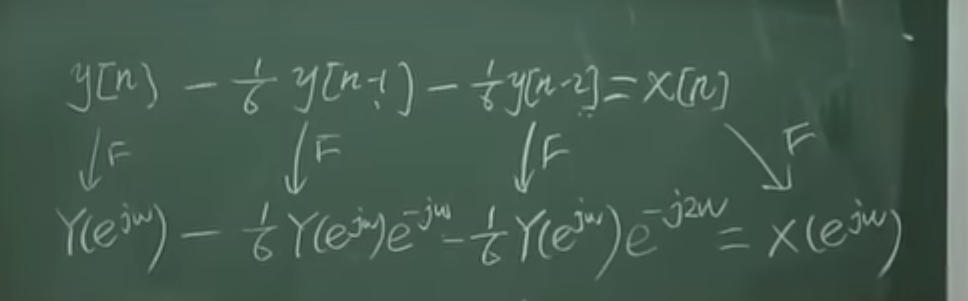 y[n] - 1/6 y[n-1] - 1/6 y[n-2] = x[n]
↓F ↓F ↓F ↘F
Y(e^{jω}) - 1/6 Y(e^{jω})e^{-jω} - 1/6 Y(e^{jω})e^{-j2ω} = X(e^{jω})